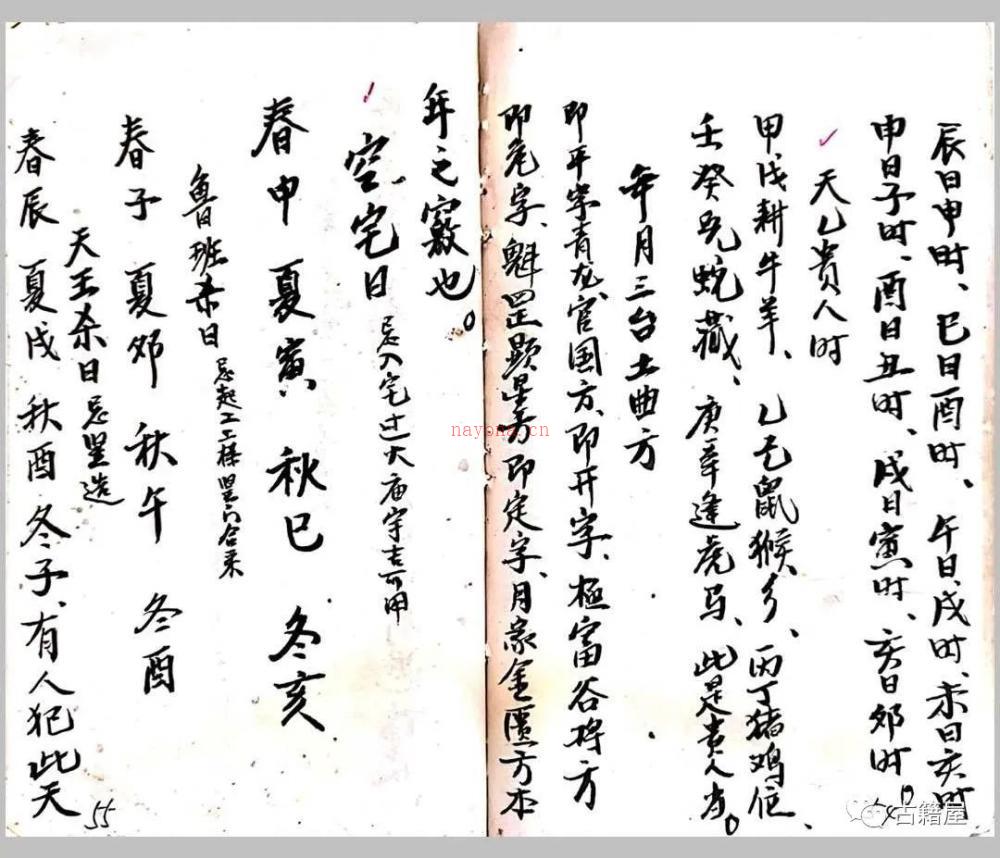 辰日申时、巳日酉时、午日戌时、未日亥时
申日子时、酉日丑时、戌日寅时、亥日卯时。
天乙贵人时
甲戊耕牛羊、乙己鼠猴乡、丙丁猪鸡位、
壬癸兔蛇藏、庚辛逢虎马、此是贵人当。
年月三台土曲方
即平字青龙、官国方、即开字、极富谷将方
即危字、魁罡显星方即定字、月家金匮方本
54
年之窍也。
空宅日 忌入宅 大庙宇吉可用
春申 夏寅 秋巳 冬亥
鲁班杀日 忌起工 竖门合米
春子 夏卯 秋午 冬酉
天王杀日 忌竖造
春辰 夏戌 秋酉 冬子、有人犯此天
55
nayona.cn
古籍屋